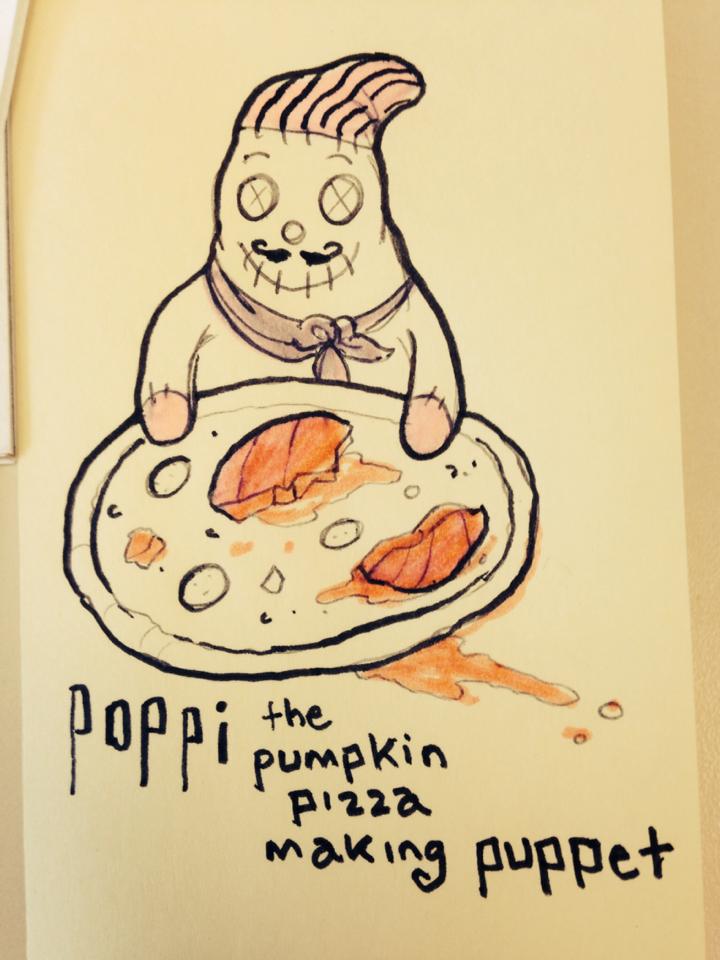 poppi the
pumpkin
pizza
making puppet